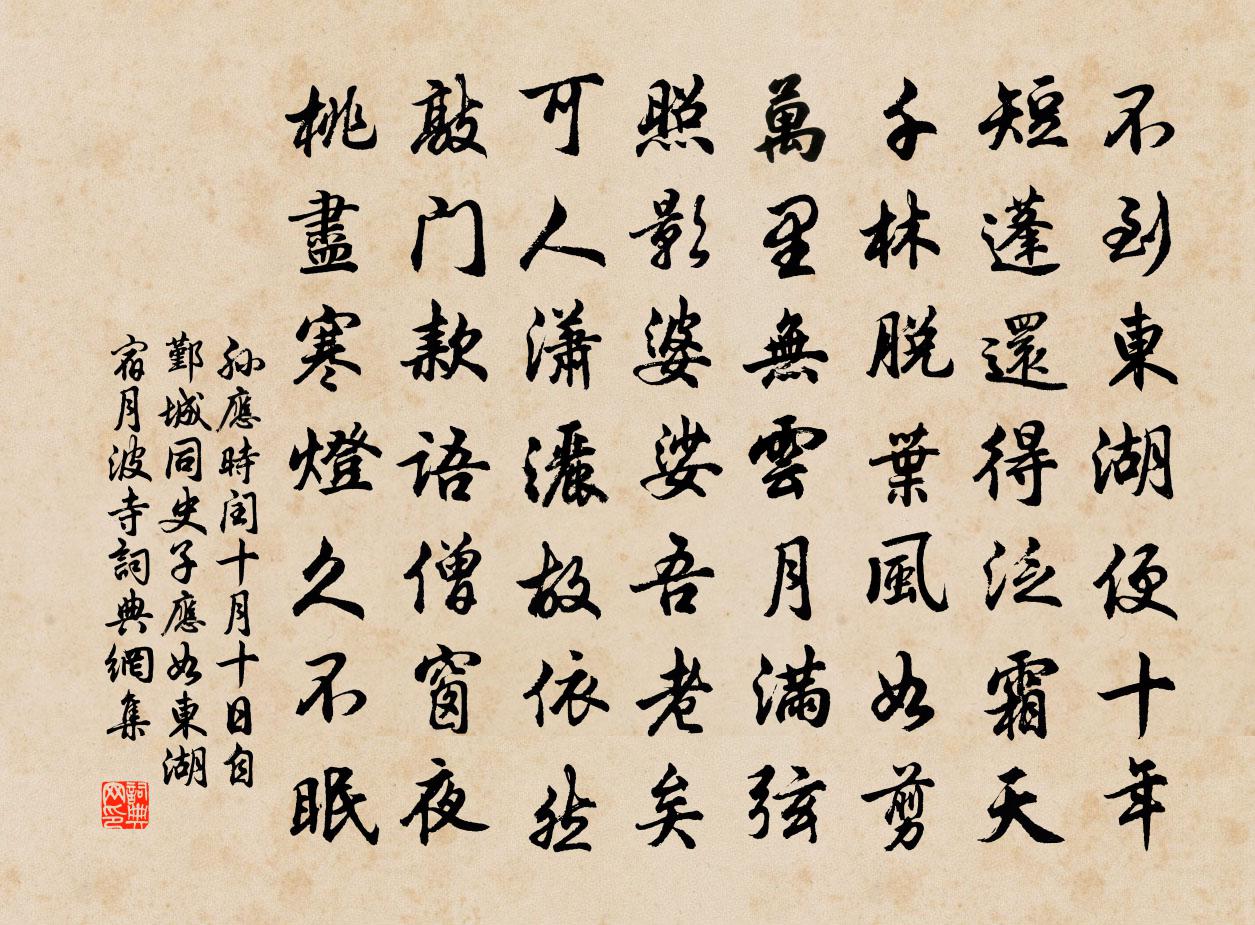 不到東湖便十年
短蓬還得泛霜天
千林脱葉風如剪
萬里無雲月滿弦
照影婆娑吾老矣
可人瀟灑故依然
敲门款語僧窗夜
桃盡寒燈久不眠
孙應時闰十月十日自
鄞城同史子應如東湖
宿月波寺詞典網集
詞典网印